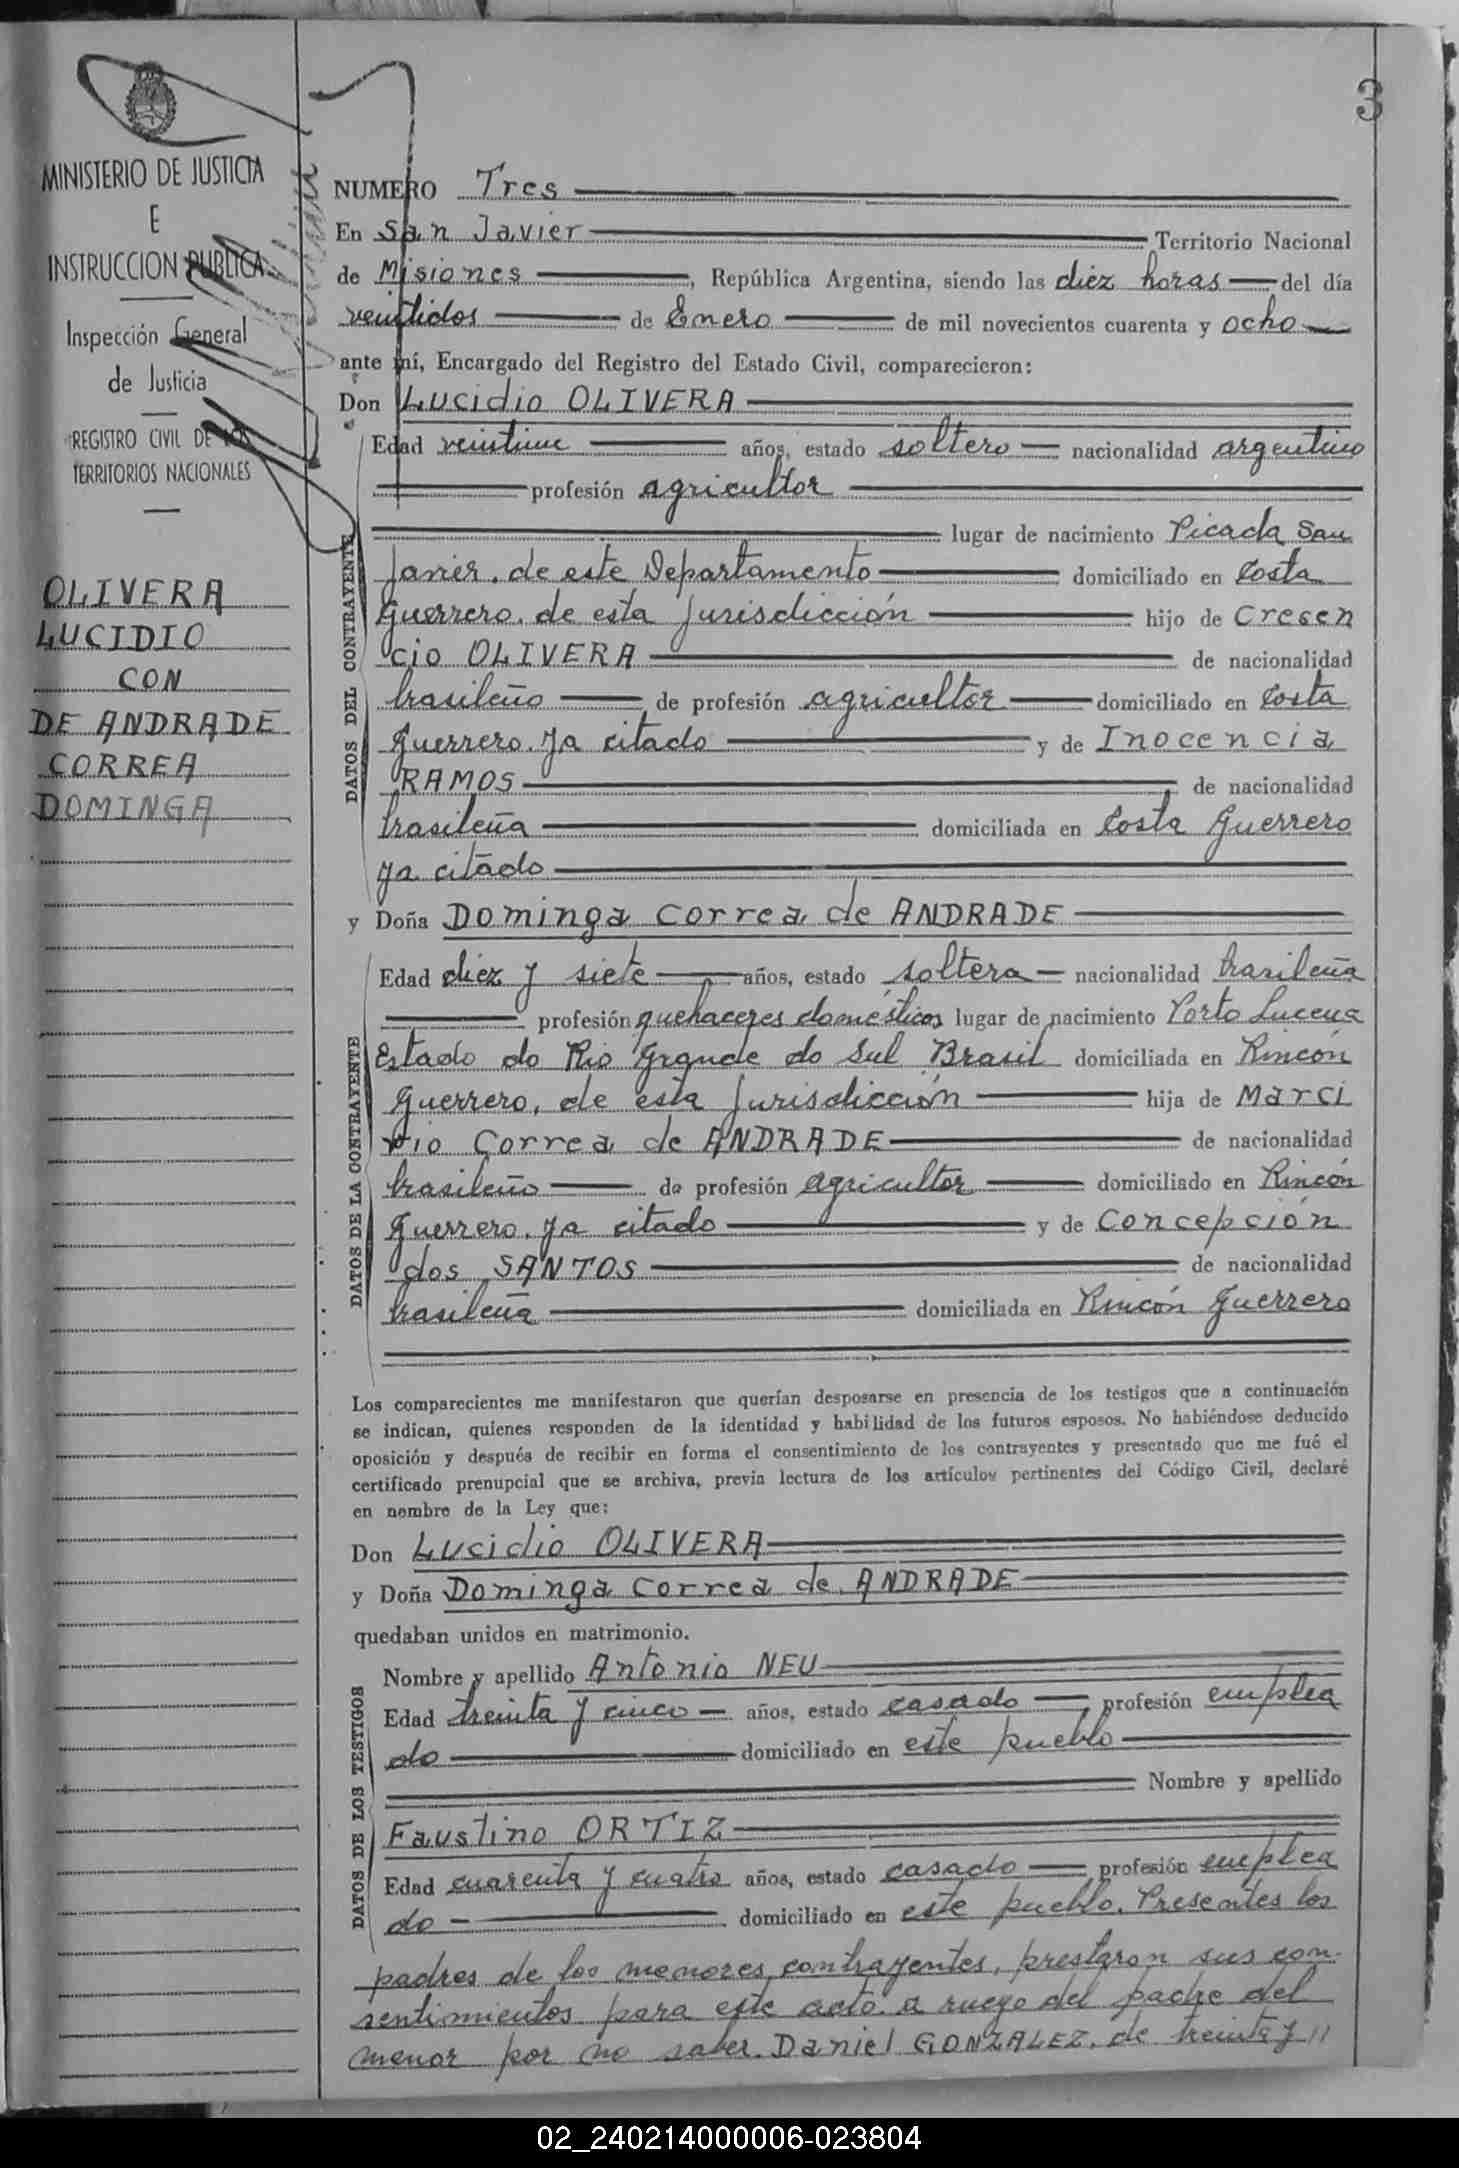 3
MINISTERIO DE JUSTICIA
E
INSTRUCCION PUBLICA
Inspección General
de Justicia
REGISTRO CIVIL DE LOS
TERRITORIOS NACIONALES
OLIVERA
LUCIDIO
CON
DE ANDRADE
CORREA
DOMINGA
NUMERO Tres
En San Javier Territorio Nacional
de Misiones, República Argentina, siendo las diez horas del día
veintidos de Enero de mil novecientos cuarenta y ocho
ante mí, Encargado del Registro del Estado Civil, comparecieron:
Don Lucidio OLIVERA
DATOS DEL CONTRAYENTE
Edad años, estado soltero nacionalidad argentino
profesión agricultor
lugar de nacimiento Picada San
Javier. de este Departamento domiciliado en Costa
Guerrero. de esta Jurisdicción hijo de Cresen
cio OLIVERA de nacionalidad
brasileño de profesión agricultor domiciliado en Costa
Guerrero. ya citado y de Inocencia
RAMOS de nacionalidad
brasileña domiciliada en Costa Guerrero
ya citado
y Doña Dominga Correa de ANDRADE
DATOS DE LA CONTRAYENTE
Edad diez y siete años, estado soltera nacionalidad brasileña
profesión quehaceres domésticos lugar de nacimiento Porto Lucena
Estado do Rio Grande do Sul Brasil domiciliada en Rincón
Guerrero, de esta Jurisdicción hija de Marci
rio Correa de ANDRADE de nacionalidad
brasileño de profesión agricultor domiciliado en Rincón
Guerrero. ya citado y de Concepción
dos SANTOS de nacionalidad
brasileña domiciliada en Rincón Guerrero
Los comparecientes me manifestaron que querían desposarse en presencia de los testigos que a continuación
se indican, quienes responden de la identidad y habilidad de los futuros esposos. No habiéndose deducido
oposición y después de recibir en forma el consentimiento de los contrayentes y presentado que me fué el
certificado prenupcial que se archiva, previa lectura de los artículos pertinentes del Código Civil, declaré
en nombre de la Ley que:
Don Lucidio OLIVERA
y Doña Dominga Correa de ANDRADE
quedaban unidos en matrimonio.
DATOS DE LOS TESTIGOS
Nombre y apellido Antonio NEU
Edad treinta y cinco años, estado casado profesión emplea
do domiciliado en este pueblo
Nombre y apellido
Faustino ORTIZ
Edad cuarenta y cuatro años, estado casado profesión emplea
do domiciliado en este pueblo. Presentes los
padres de los menores contrayentes, prestaron sus con-
sentimientos para este acto. a ruego del padre del
menor por no saber. Daniel GONZALEZ. de treinta y //
02_240214000006-023804